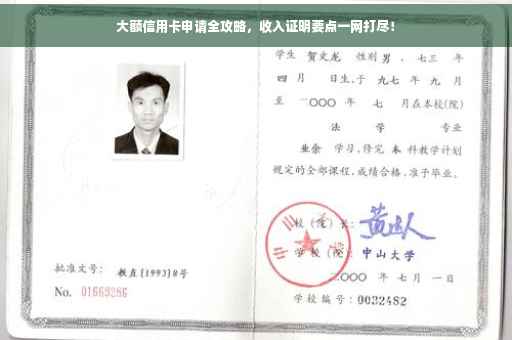 大额信用卡申请全攻略，收入证明要点一网打尽！
学生 贺文龙 性别男，七三 年
四 月 日生，于 九七 年 九 月
至 二〇〇〇 年 七 月在本校(院)
法 学 专业
业余 学习，修完 本 科教学计划
规定的全部课程，成绩合格，准予毕业。
校(院)长：
学 校(院)： 中山大学
二〇〇〇 年 七 月 一 日
批准文号： 教直(1993)8号
No. 01669286
学校编号：0032482